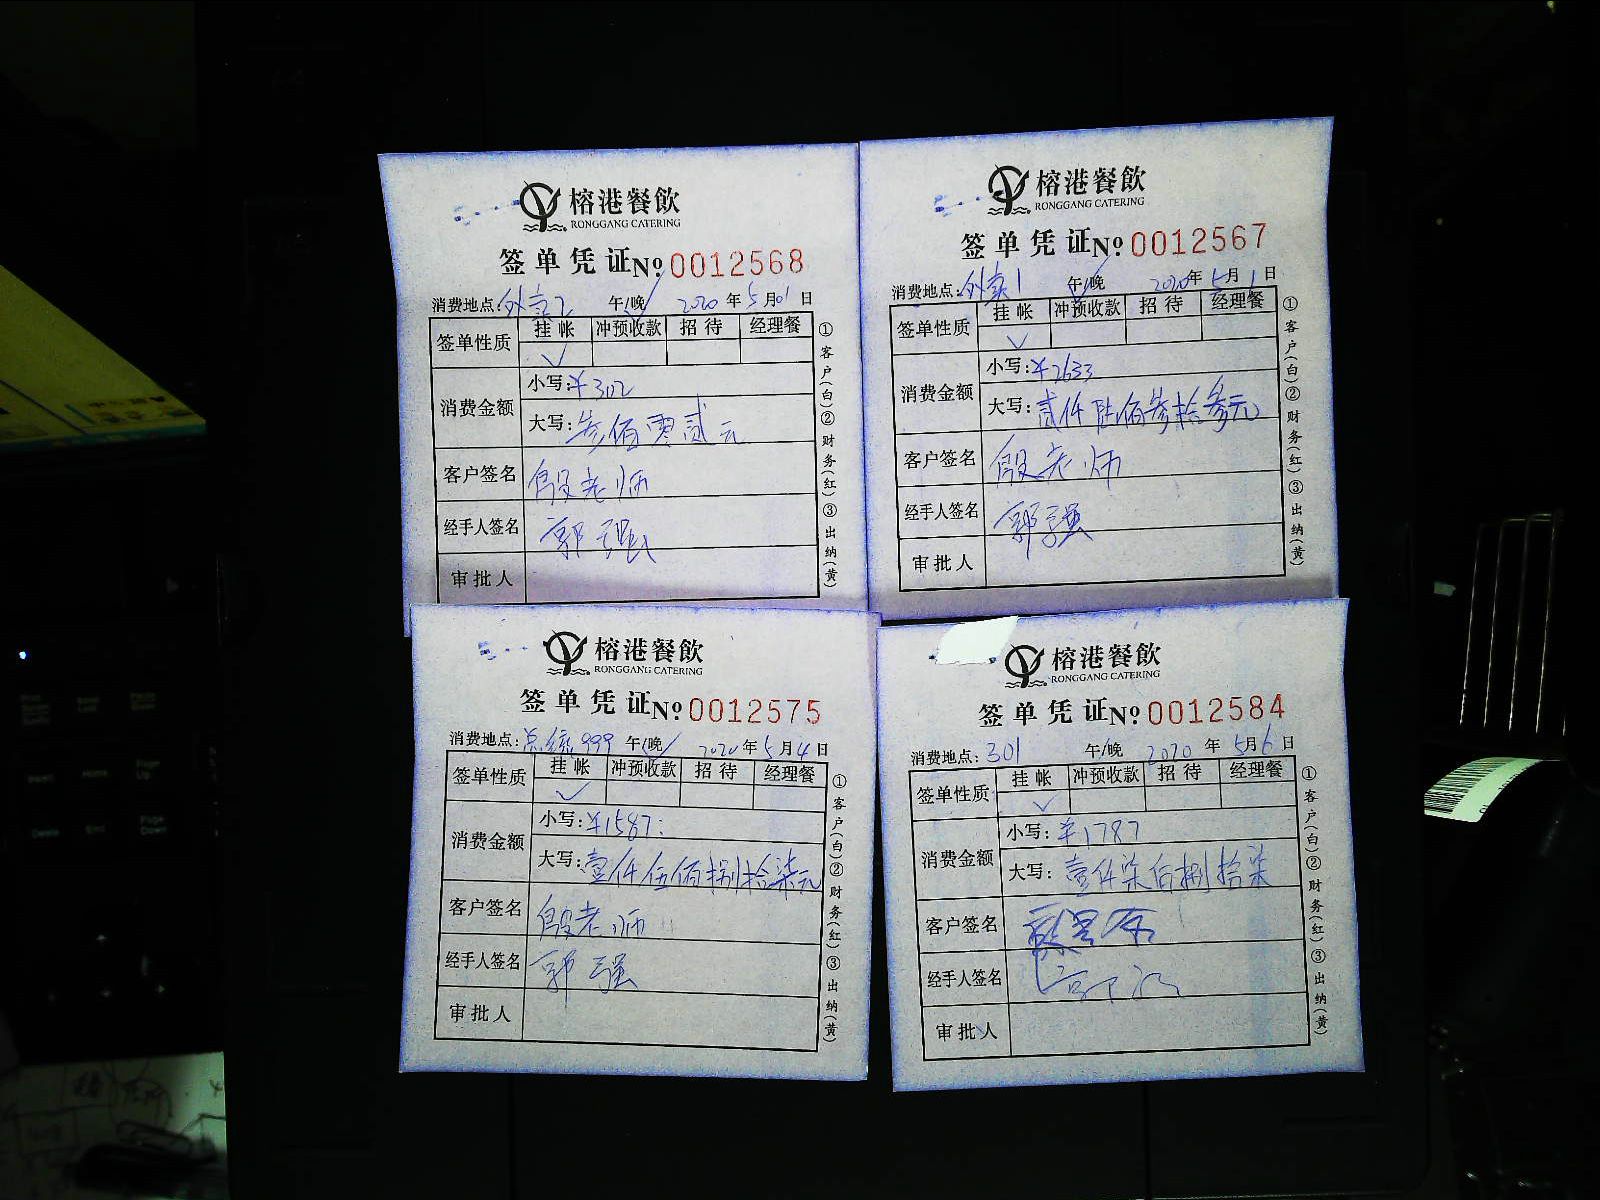 榕港餐飲
RONGGANG CATERING
签单凭证 No 0012568
消费地点:外卖2 午/晚 2020年5月01日
签单性质 挂帐 冲预收款 招待 经理餐
✓
消费金额 小写:¥302
大写:叁佰零贰元
客户签名 殷老师
经手人签名 郭强
审批人
①客户(白)②财务(红)③出纳(黄)
榕港餐飲
RONGGANG CATERING
签单凭证 No 0012567
消费地点:外卖1 午/晚 2020年5月1日
签单性质 挂帐 冲预收款 招待 经理餐
✓
消费金额 小写:¥2633
大写:贰仟陆佰叁拾叁元
客户签名 殷老师
经手人签名 郭强
审批人
①客户(白)②财务(红)③出纳(黄)
榕港餐飲
RONGGANG CATERING
签单凭证 No 0012575
消费地点:总统999 午/晚 2020年5月4日
签单性质 挂帐 冲预收款 招待 经理餐
✓
消费金额 小写:¥1587
大写:壹仟伍佰捌拾柒元
客户签名 殷老师
经手人签名 郭强
审批人
①客户(白)②财务(红)③出纳(黄)
榕港餐飲
RONGGANG CATERING
签单凭证 No 0012584
消费地点:301 午/晚 2020年5月6日
签单性质 挂帐 冲预收款 招待 经理餐
✓
消费金额 小写:¥1787
大写:壹仟柒佰捌拾柒
客户签名
经手人签名
审批人
①客户(白)②财务(红)③出纳(黄)